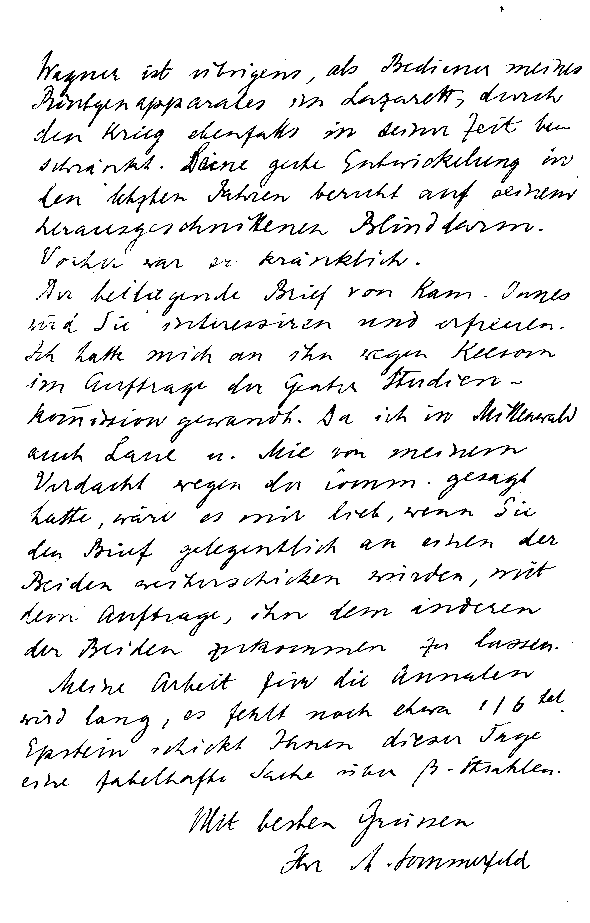 Wagner ist übrigens, als Bediener meines
Röntgenapparates im Lazarett, durch
den Krieg ebenfalls in seiner Zeit be-
schränkt. Seine gute Entwickelung in
den letzten Jahren beruht auf seinem
herausgeschnittenen Blinddarm.
Vorher war er kränklich.
Der beiliegende Brief von Kam. Onnes
wird Sie interessiren und erfreuen.
Ich hatte mich an ihn wegen Keesom
im Auftrage der Genter Studien-
kommission gewandt. Da ich in Mittenwald
auch Laue u. Mie von meinem
Verdacht wegen der gesagt
hatte, wäre es mir lieb, wenn Sie
den Brief gelegentlich an einen der
Beiden weiterschicken würden, mit
dem Auftrage, ihn dem anderen
der Beiden zukommen zu lassen.
Meine Arbeit für die Annalen
wird lang, es fehlt noch etwa 1/6 tel.
Epstein schickt Ihnen dieser Tage
eine fabelhafte Sache über β-Strahlen.
Mit besten Grüssen
Ihr A. Sommerfeld